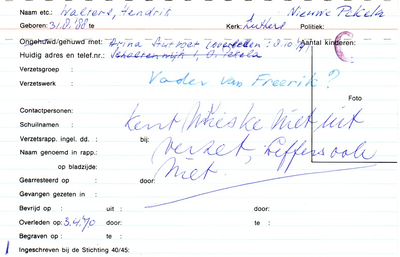 Naam etc.: Halfers, Hendrik Nieuwe Pekela
Geboren: 31.8.'88 te Kerk: Luthers Politiek:
Ongehuwd/gehuwd met: (overleden: Aantal kinderen:
Huidig adres en telef.nr.: O. Pekela
Verzetsgroep :
Verzetswerk : Vader van Freerik?
Foto
Contactpersonen:
Schuilnaam : kent Wieske niet uit
Verzetsrapp. ingel. dd. : bij: verzet, Leffers ook
Naam genoemd in rapp.: niet.
op bladzijde:
Gearresteerd op : door:
Gevangen gezeten in :
Bevrijd op : uit : door:
Overleden op : 3.4.70 door: te :
Begraven op : te :
Ingeschreven bij de Stichting 40/45: